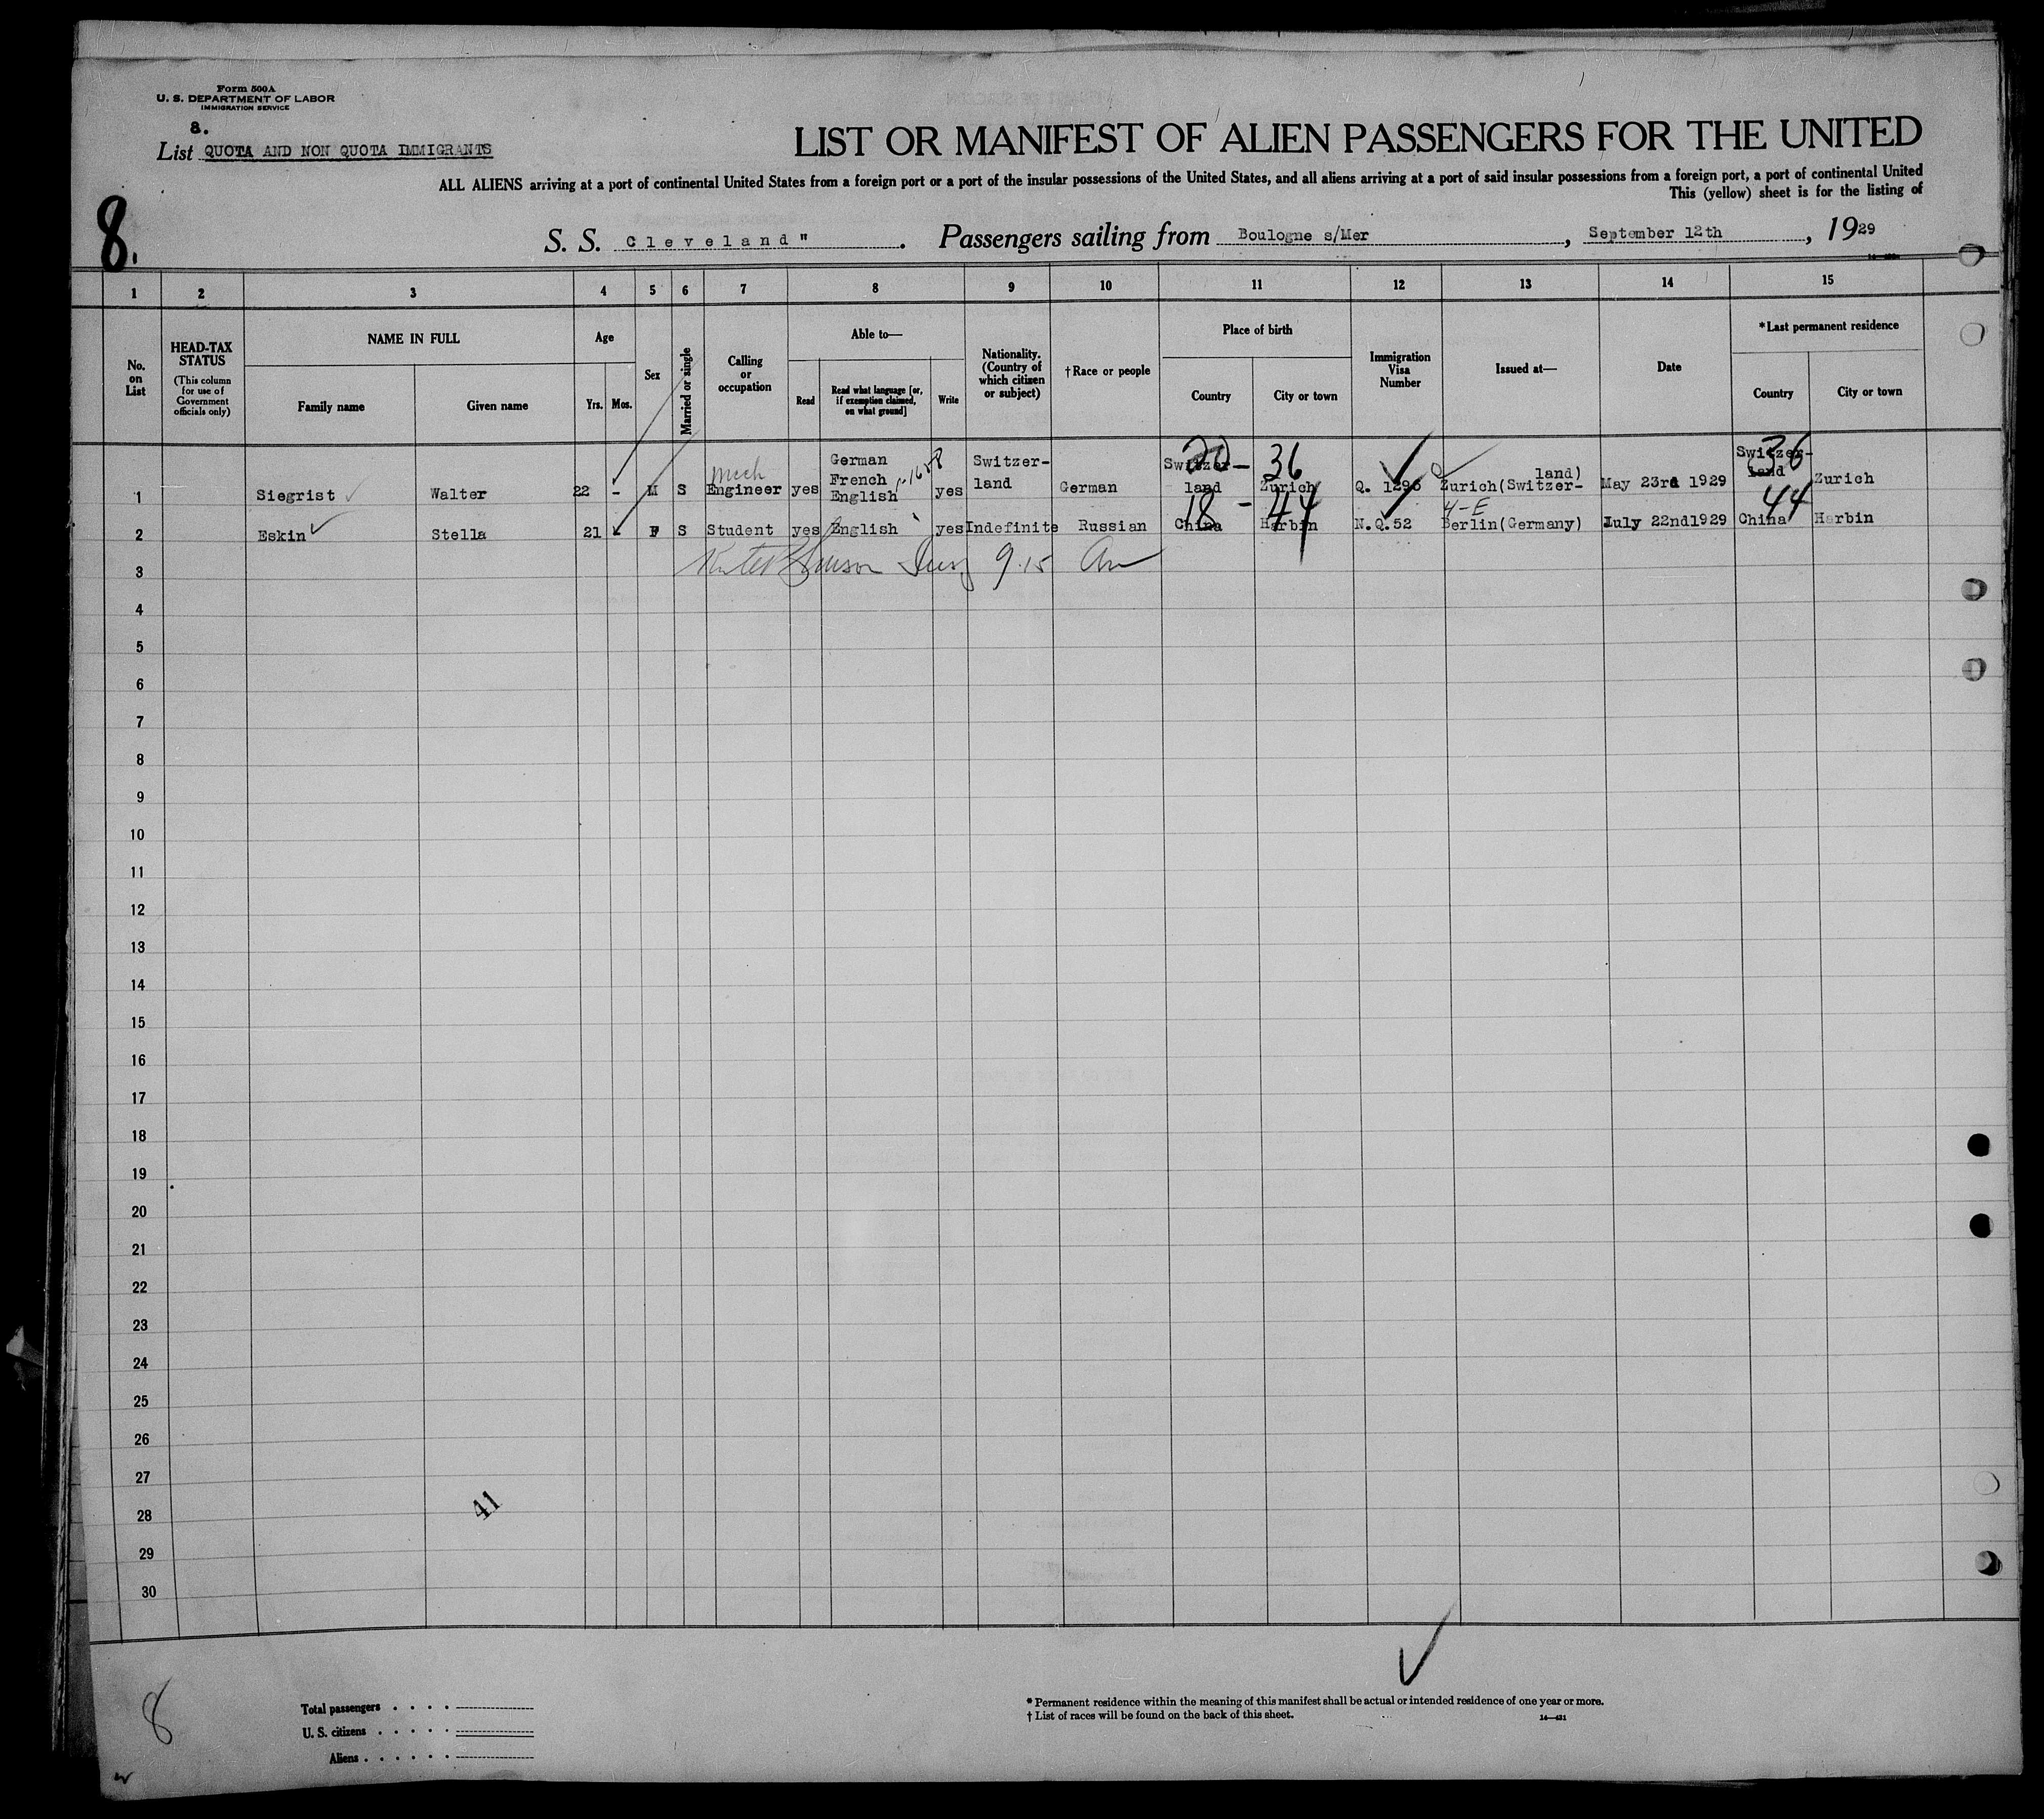 Form 500A
U. S. DEPARTMENT OF LABOR
IMMIGRATION SERVICE
a.
List QUOTA AND NON QUOTA IMMIGRANTS
LIST OR MANIFEST OF ALIEN PASSENGERS FOR THE UNITED
ALL ALIENS arriving at a port of continental United States from a foreign port or a port of the insular possessions of the United States, and all aliens arriving at a port of said insular possessions from a foreign port, a port of continental United
This (yellow) sheet is for the listing of
8.
S. S. Cleveland" . Passengers sailing from Boulogne s/Mer , September 12th , 1929
1 2 3 4 5 6 7 8 9 10 11 12 13 14 15
No. on List
HEAD-TAX STATUS
(This column for use of Government officials only)
NAME IN FULL
Family name
Given name
Age
Yrs.
Mos.
Sex
Married or single
Calling or occupation
Able to—
Read
Read what language [or, if exemption claimed, on what ground]
Write
Nationality. (Country of which citizen or subject)
†Race or people
Place of birth
Country
City or town
Immigration Visa Number
Issued at—
Date
*Last permanent residence
Country
City or town
1 Siegrist Walter 22 - M S Mech Engineer yes German French English yes Switzer-land German Switzer-land Zurich Q. 1296 Zurich(Switzer-land) May 23rd 1929 Switzer-land Zurich
20 – 36
36
2 Eskin Stella 21 F S Student yes English yes Indefinite Russian China Harbin N.Q.52 Berlin(Germany) July 22nd1929 China Harbin
18 - 44
4-E
44
3 9.15
4
5
6
7
8
9
10
11
12
13
14
15
16
17
18
19
20
21
22
23
24
25
26
27
28
41
29
30
8
Total passengers
U. S. citizens
Aliens
* Permanent residence within the meaning of this manifest shall be actual or intended residence of one year or more.
† List of races will be found on the back of this sheet.
14—421